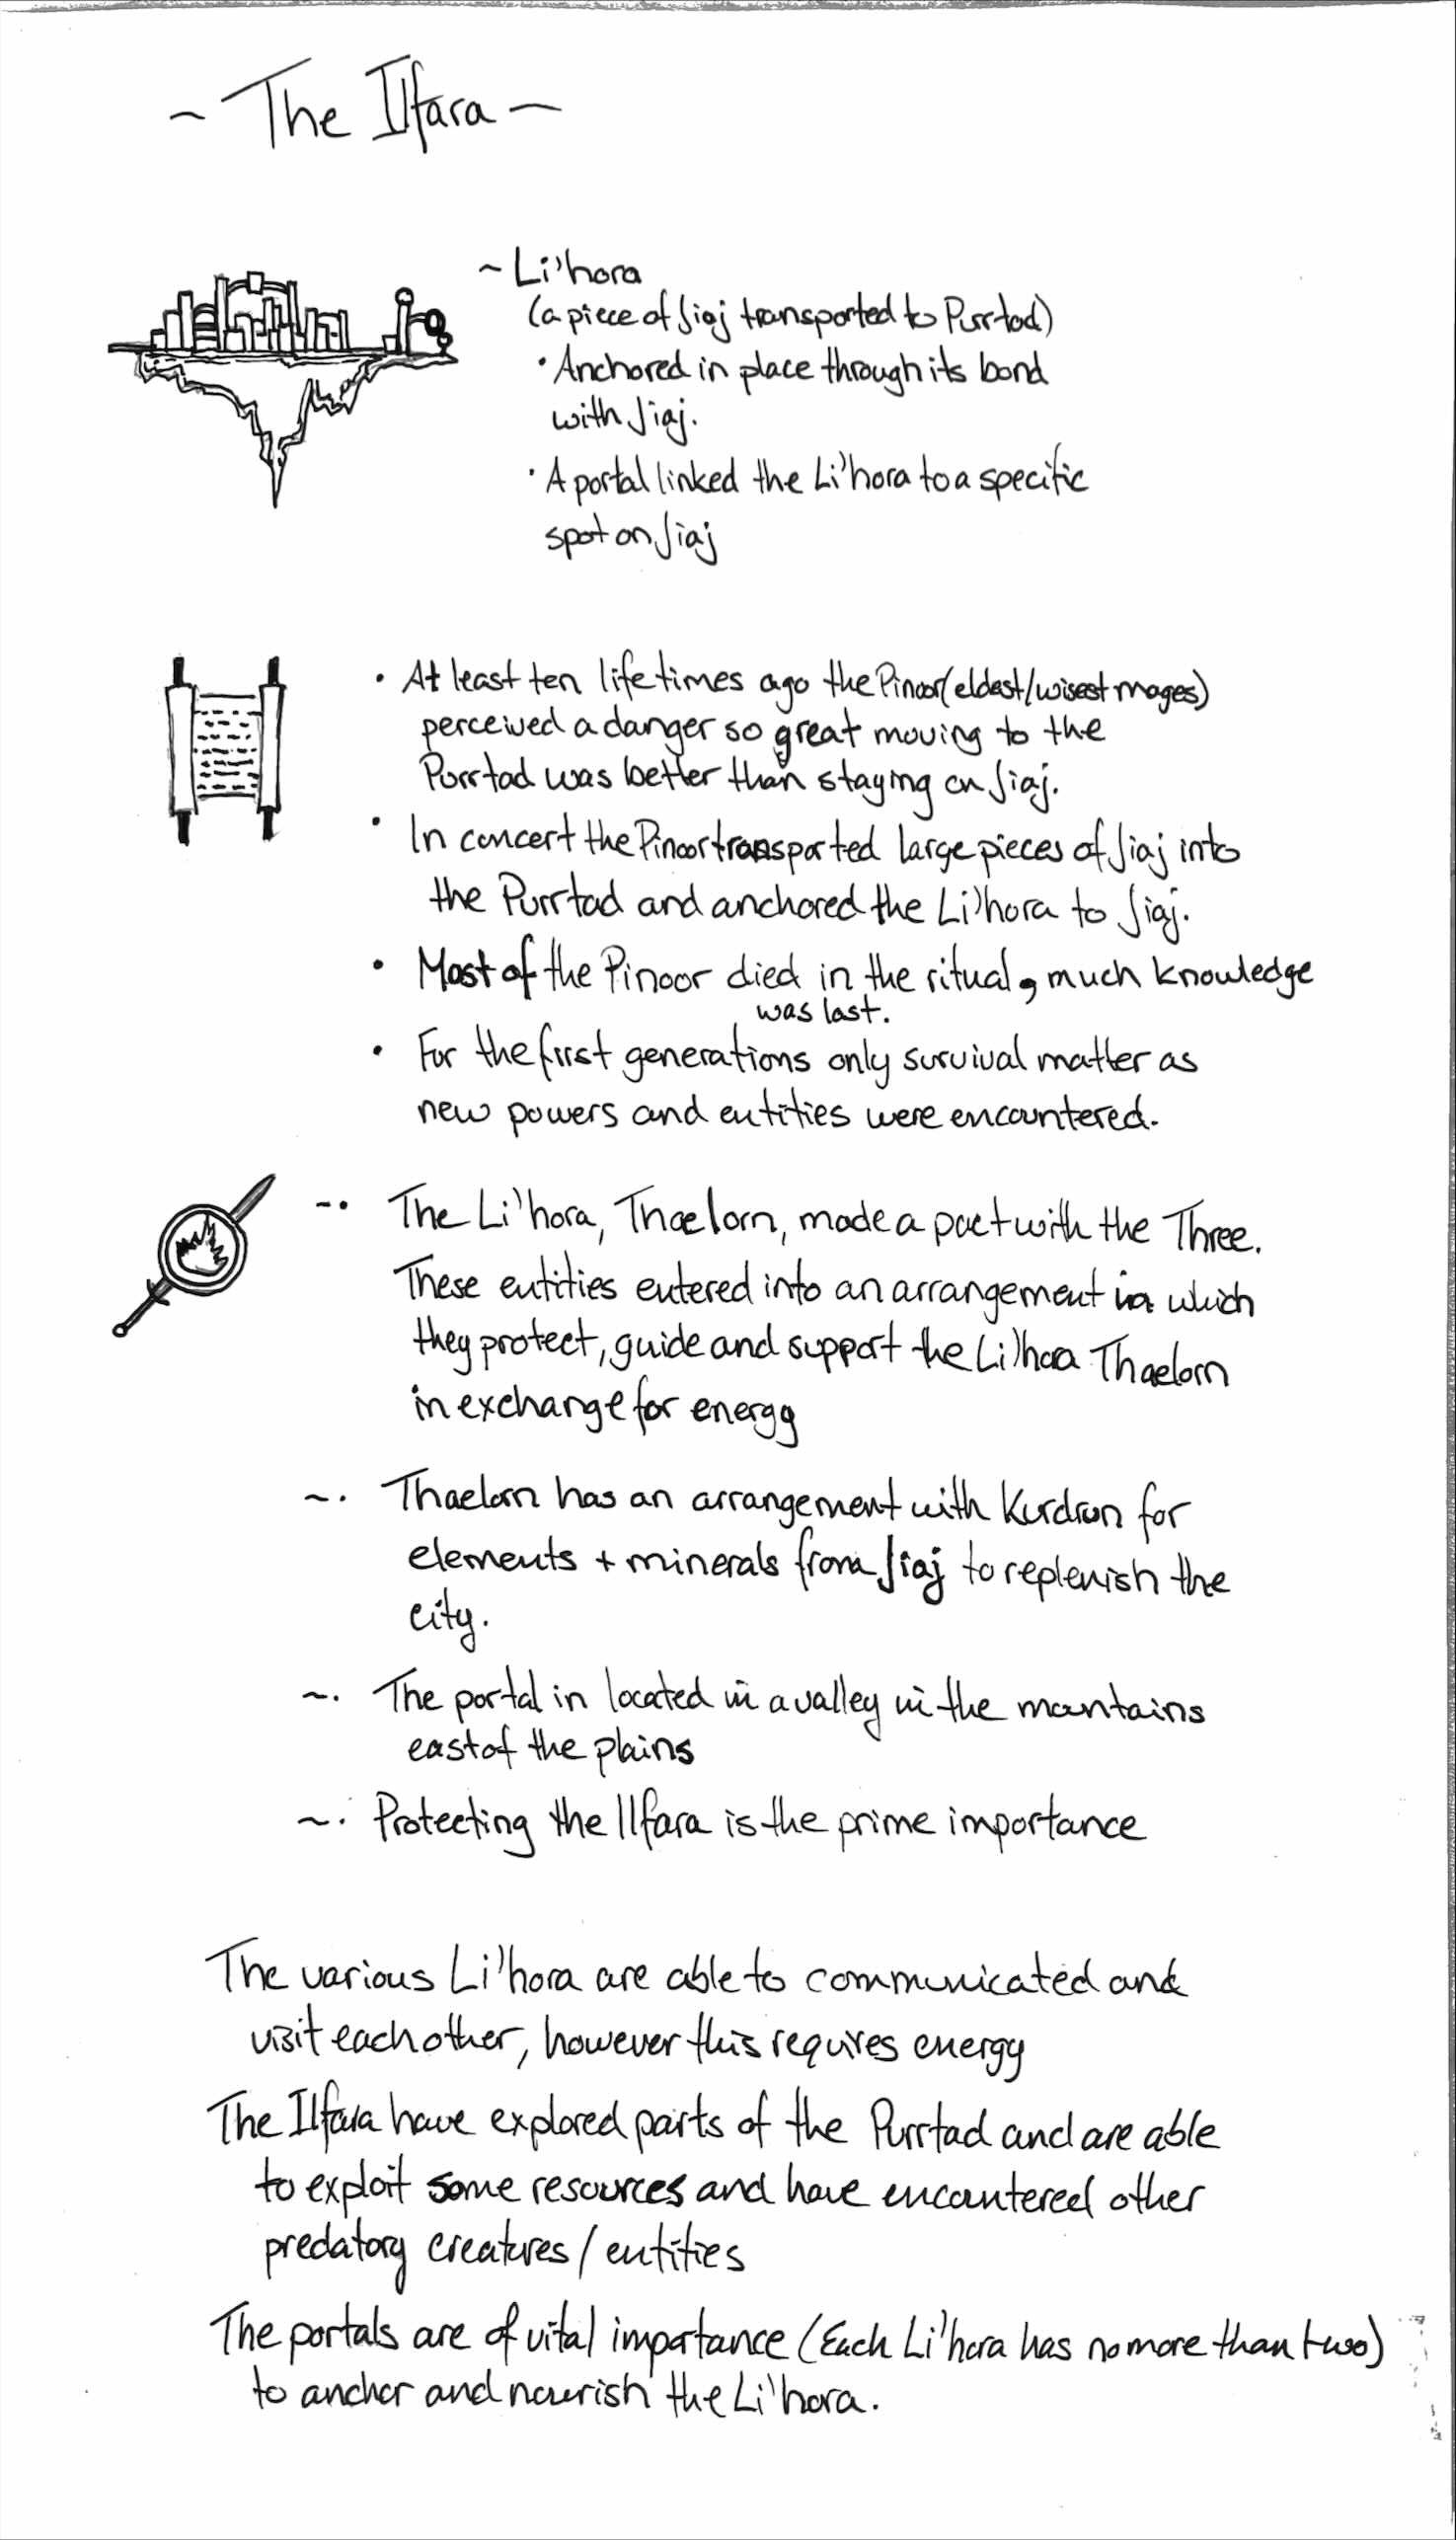 ~ The Ilfara ~
~ Li'hora
(a piece of Jiaj transported to Purrtad)
• Anchored in place through its bond
with Jiaj.
• A portal linked the Li'hora to a specific
spot on Jiaj
• At least ten lifetimes ago the Pinoor (eldest/wisest mages)
perceived a danger so great moving to the
Purrtad was better than staying on Jiaj.
• In concert the Pinoor transported large pieces of Jiaj into
the Purrtad and anchored the Li'hora to Jiaj.
• Most of the Pinoor died in the ritual, much knowledge
was lost.
• For the first generations only survival matter as
new powers and entities were encountered.
~• The Li'hora, Thaelorn, made a pact with the Three.
These entities entered into an arrangement in which
they protect, guide and support the Li'hora Thaelorn
in exchange for energy
~• Thaelorn has an arrangement with Kurdrun for
elements + minerals from Jiaj to replenish the
city.
~• The portal in located in a valley in the mountains
east of the plains
~• Protecting the Ilfara is the prime importance
The various Li'hora are able to communicated and
visit each other, however this requires energy
The Ilfara have explored parts of the Purrtad and are able
to exploit some resources and have encountered other
predatory creatures / entities
The portals are of vital importance (Each Li'hora has no more than two)
to anchor and nourish the Li'hora.